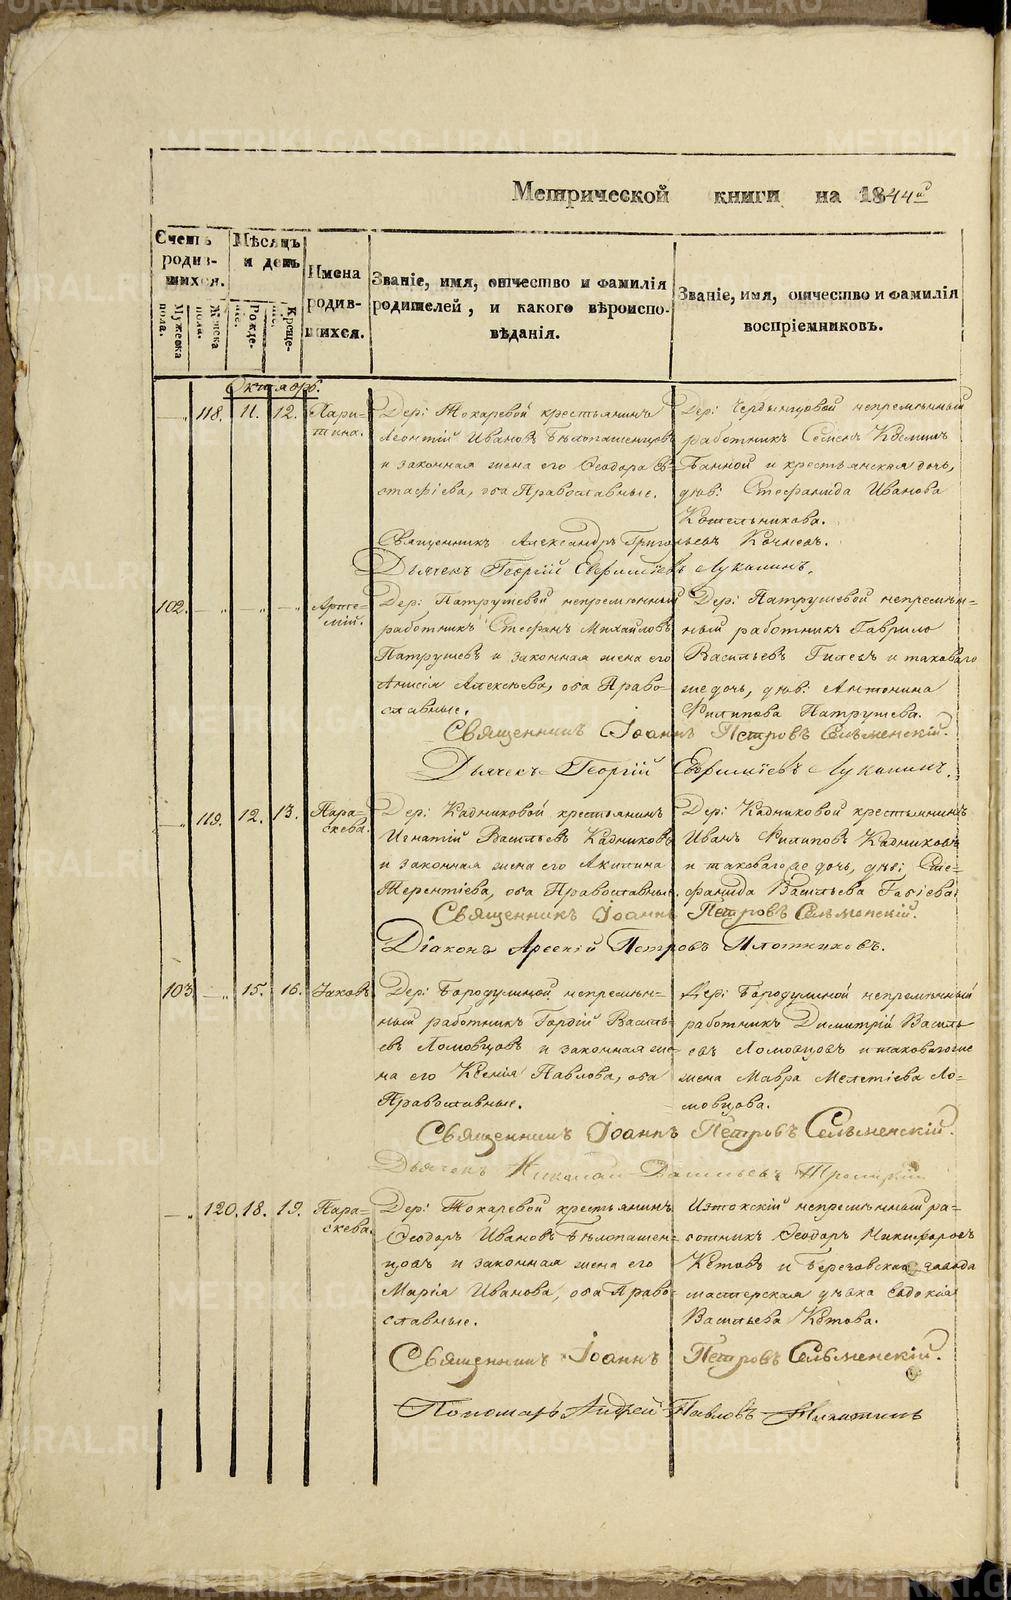 METRIKI.GASO-URAL.RU
Метрической книги на 1844й
Счетъ родив-шихся.
Мужеска пола.
Женска пола.
Мѣсяцъ и день
Рожде-нiе.
Креще-нiе.
Имена родив-шихся.
Званiе, имя, отчество и фамилiя
родителей, и какого вѣроиспо-
вѣданiя.
Званiе, имя, отчество и фамилiя
воспрiемниковъ.
Октябрь.
118. 11. 12. Хари-
тина.
Дер: Токаревой крестьянинъ
Леонтiй Ивановъ Бѣлопашенцовъ
и законная жена его Ѳеодора Ев-
стафiева, оба Православные.
Дер: Чердынцовой непремѣнный
работникъ Семенъ Козминъ
Банной и крестьянская дочь,
дѣв: Стефанида Иванова
Котельникова.
Священникъ Александръ Григорьевъ Кочневъ.
Дьячекъ Георгiй Евфимiевъ Лукапинъ.
102. — „ — „ — „ Арте-
мiй.
Дер: Патрушевой непремѣнный
работникъ Стефанъ Михайловъ
Патрушевъ и законная жена его
Анисiя Алексѣева, оба Право-
славные.
Дер: Патрушевой непремѣн-
ный работникъ Гаврило
Васильевъ Гилевъ и таковаго
же дочь, дѣв: Антонина
Филипова Патрушева.
Священникъ Iоаннъ Петровъ Сельменскiй.
Дьячекъ Георгiй Евфимiевъ Лукапинъ.
— „ 119. 12. 13. Пара-
скева.
Дер: Кадниковой крестьянинъ
Игнатiй Васильевъ Кадниковъ
и законная жена его Акилина
Терентiева, оба Православные.
Дер: Кадниковой крестьянинъ
Иванъ Филиповъ Кадниковъ
и таковаго же дочь, дѣв: Сте-
фанида Васильева
Священникъ Iоаннъ Петровъ Сельменскiй.
Дiаконъ Арсенiй Петровъ Плотниковъ.
103. — „ 15. 16. Iаковъ.
Дер: Бородулиной непремѣн-
ный работникъ Гордiй Василь-
евъ Ломовцовъ и законная же-
на его Ксенiя Павлова, оба
Православные.
Дер: Бородулиной непремѣнный
работникъ Димитрiй Василь
евъ Ломовцовъ и таковаго же
жена Мавра Мелетiева Ло-
мовцова.
Священникъ Iоаннъ Петровъ Сельменскiй.
Дьячекъ Николай Васильевъ Троицкiй
— „ 120. 18. 19. Пара-
скева.
Дер: Токаревой крестьянинъ
Ѳеодоръ Ивановъ Бѣлопашен-
цовъ и законная жена его
Марiя Иванова, оба Право-
славные.
Истокскiй непремѣнный ра-
ботникъ Ѳеодоръ Никифоровъ
Кетовъ и Березовскаго завода
мастерская Евдокiя
Васильева Кетова.
Священникъ Iоаннъ Петровъ Сельменскiй.
Пономарь Андрей Павловъ Никитинъ